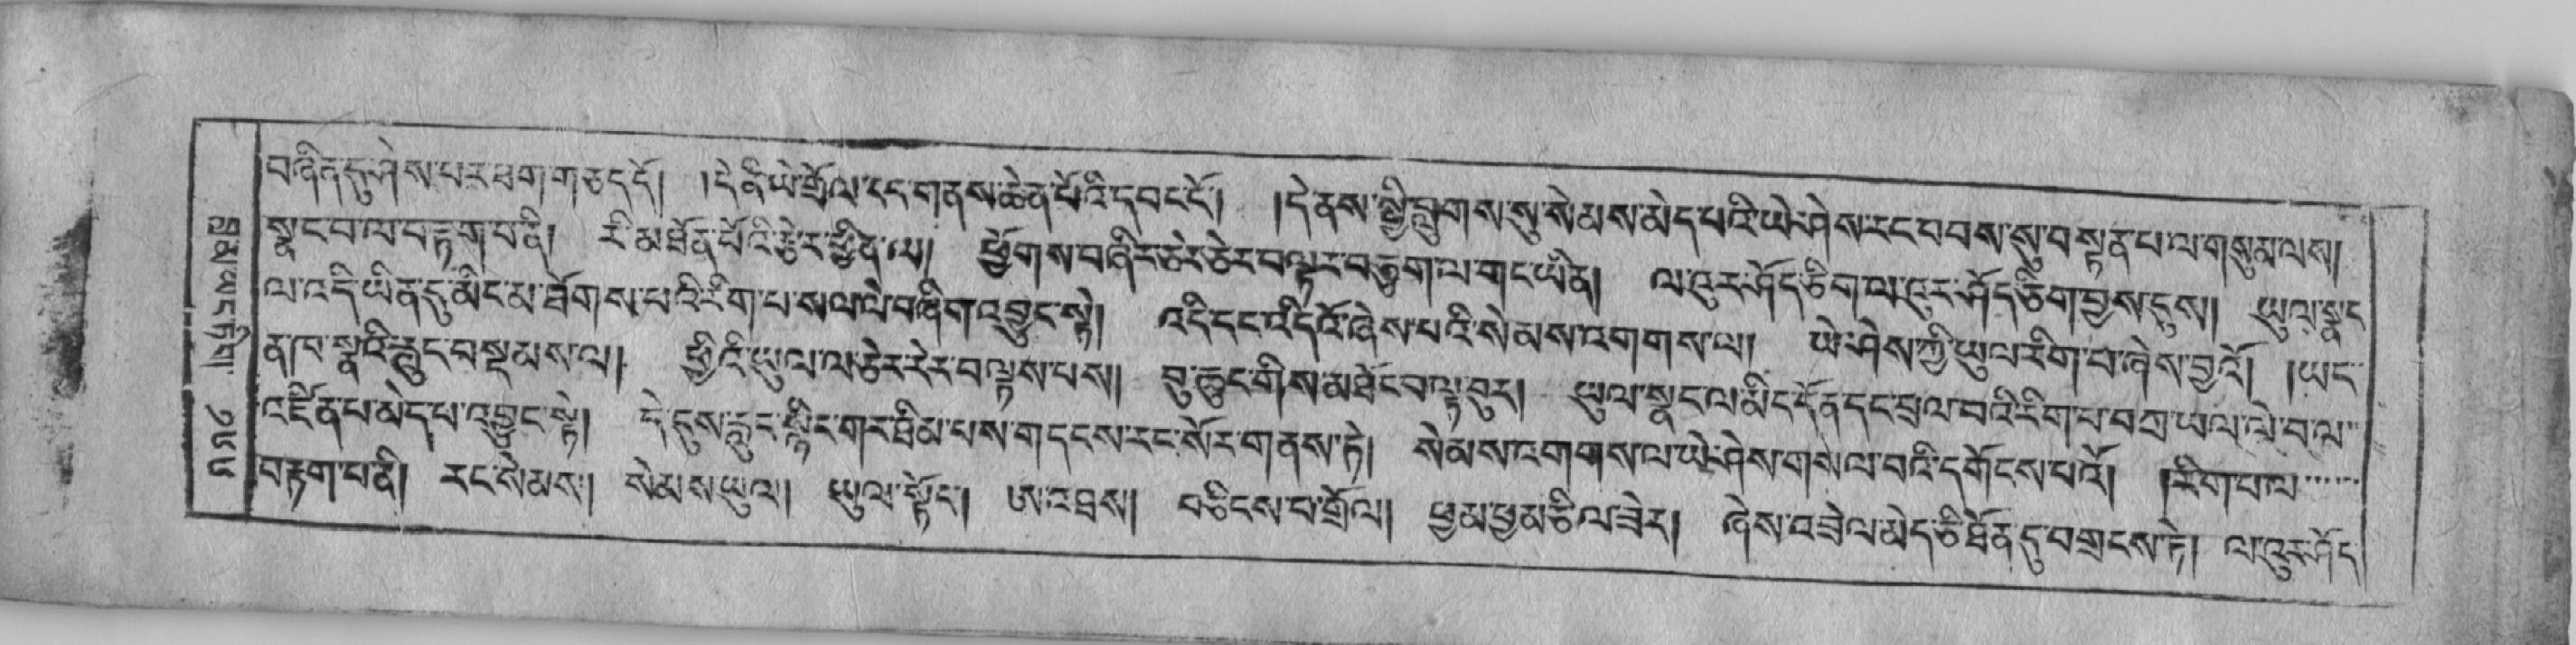 བཞིན་དུ་ཤེས་པར་ཕག་གཅད་དོ། །དེ་ནི་ཡེ་གྲོལ་རང་གནས་ཆེན་པོའི་དབང་ངོ་། །དེ་ནས་སྤྱི་བླུགས་སུ་སེམས་མེད་པའི་ཡེ་ཤེས་རང་བབས་སུ་བསྟན་པ་ལ་གསུམ་ལས།
སྣང་བ་ལ་བརྟག་པ་ནི། རི་མཐོན་པོའི་རྩེར་ཕྱིན་ལ། ཕྱོགས་བཞིར་ཅེར་ཅེར་བལྟར་བཅུག་ལ་གང་ཡིན། ལ་ཁུར་ཤོད་ཅིག་ལ་ཁུར་ཤོད་ཅིག་བྱས་དུས། ཡུལ་སྣང
ལ་འདི་ཡིན་དུ་མིང་མ་ཐོགས་པའི་རིག་པ་སལ་ལེ་བཞིག་འབྱུང་སྟེ། འདི་དང་འདིའོ་ཞེས་པའི་སེམས་འགགས་ལ། ཡེ་ཤེས་ཀྱི་ཡུལ་རིག་པ་ཞེས་བྱའོ། །ཡང་
ན་ཁ་སྣའི་རླུང་བསྡམས་ལ། ཕྱིའི་ཡུལ་ལ་ཅེར་རེར་བལྟས་པས། བུ་ཆུང་གིས་མཐོང་བ་ལྟ་བུར། ཡུལ་སྣང་ལ་མིང་དོན་དང་བྲལ་བའི་རིག་པ་བཀྲ་ཡལ་ལེ་བ་ལ
འཛིན་པ་མེད་པ་འབྱུང་སྟེ། དེ་དུས་རླུང་སྙིང་གར་ཐིམ་པས་གདངས་རང་སོར་གནས་ཏེ། སེམས་འགགས་ལ་ཡེ་ཤེས་གསལ་བའི་དགོངས་པའོ། །རིག་པ་ལ་
བརྟག་པ་ནི། རང་སེམས། སེམས་ཡུལ། ཡུལ་སྟོང་། ཨ་འཐས། བཅིངས་པ་གྲོལ། ཕྱམ་ཕྱམ་ཅིལ་ཟེར། ཞེས་འབྲེལ་མེད་ཅི་ཐོན་དུ་བགྲངས་ཏེ། ལ་ཁུར་ཤོད